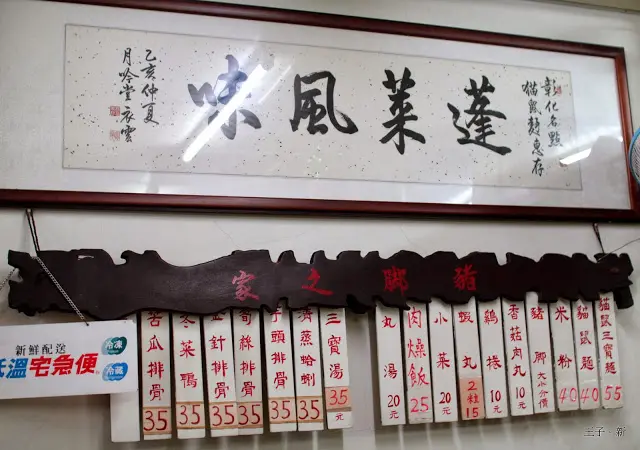 蓬萊風味
彰化名點
貓鼠麵惠存
乙亥仲夏
月吟堂衣雲
豬腳之家
貓鼠三寶麵 55
貓鼠麵 40
米粉 40
豬腳 大小分價
香菇肉丸 10元
鷄捲 10元
蝦丸 2粒15
小菜 20元
肉燥飯 25
丸湯 20元
三寶湯 35元
清蒸蛤蜊 35
芋頭排骨 35
筍絲排骨 35
金針排骨 35
冬菜鴨 35
苦瓜排骨 35
新鮮配送
低溫宅急便
冷凍
冷藏
王子‧新